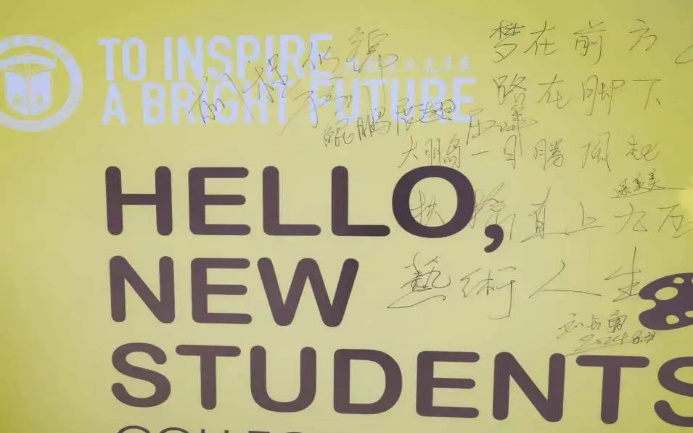 TO INSPIRE
A BRIGHT FUTURE
前程似锦
鲲鹏展翅
梦在前方
路在脚下
大鹏一日同风起
扶摇直上九万
藝術人生
HELLO,
NEW
STUDENTS